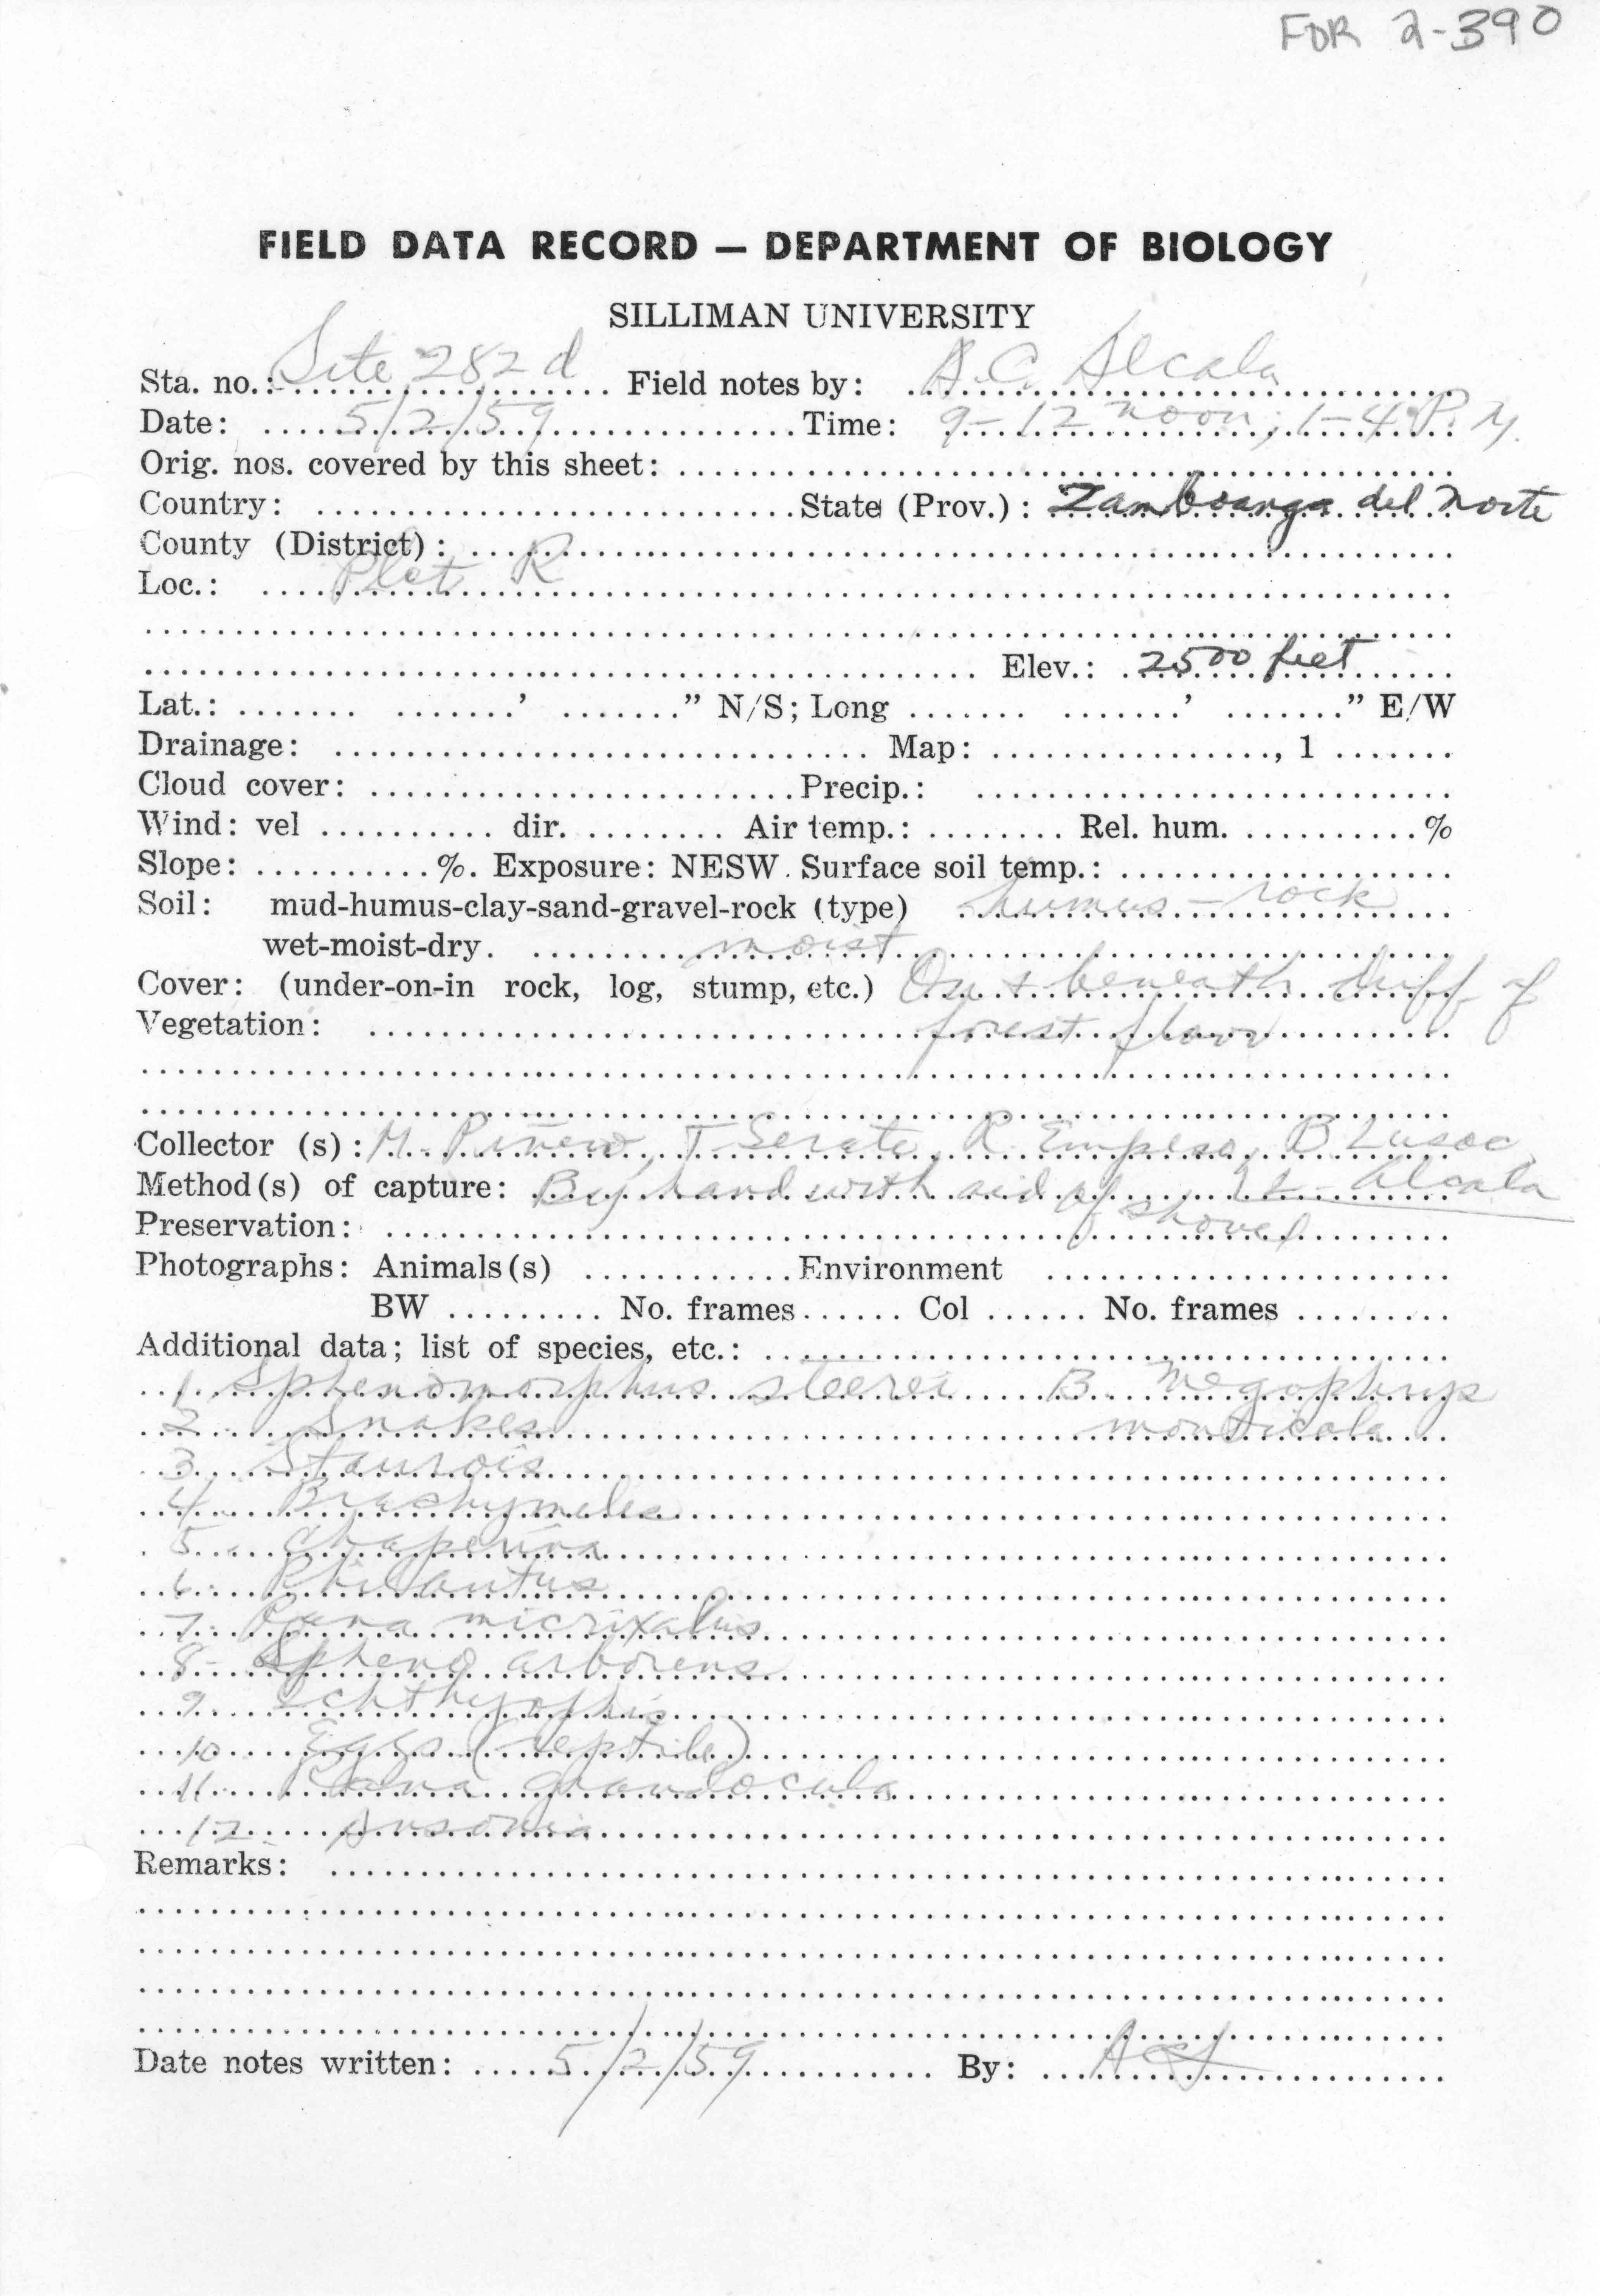 FDR 2-390
FIELD DATA RECORD — DEPARTMENT OF BIOLOGY
SILLIMAN UNIVERSITY
Sta. no.: Site 282 d Field notes by: A.C. Alcala
Date: 5/2/59 Time: 9-12 noon; 1-4 P.M.
Orig. nos. covered by this sheet:
Country: State (Prov.): Zamboanga del Norte
County (District):
Loc.: Plot R
Elev.: 2500 feet
Lat.: ' " N/S; Long ' " E/W
Drainage: Map: , 1
Cloud cover: Precip.:
Wind: vel dir. Air temp.: Rel. hum. %
Slope: %. Exposure: NESW. Surface soil temp.:
Soil: mud-humus-clay-sand-gravel-rock (type) humus - rock
wet-moist-dry. moist
Cover: (under-on-in rock, log, stump, etc.) On & beneath duff of
Vegetation: forest floor
Collector (s): M. Pinero, T Serate, R. Empeso, B Lusoc
Method(s) of capture: By hand with aid of Alcala
shovel
Preservation:
Photographs: Animals(s) Environment
BW No. frames Col No. frames
Additional data; list of species, etc.:
1. Sphenomorphus steerei 13. Megophrys
2. Snakes monticola
3. Staurois
4. Brachymeles
5. Chaperina
6. Philautus
7. Rana micrixalus
8- Spheno arborens
9. Ichthyophis
10. Eggs (reptile)
11. Rana grandocula
12. Ansonia
Remarks:
Date notes written: 5/2/59 By: ACA